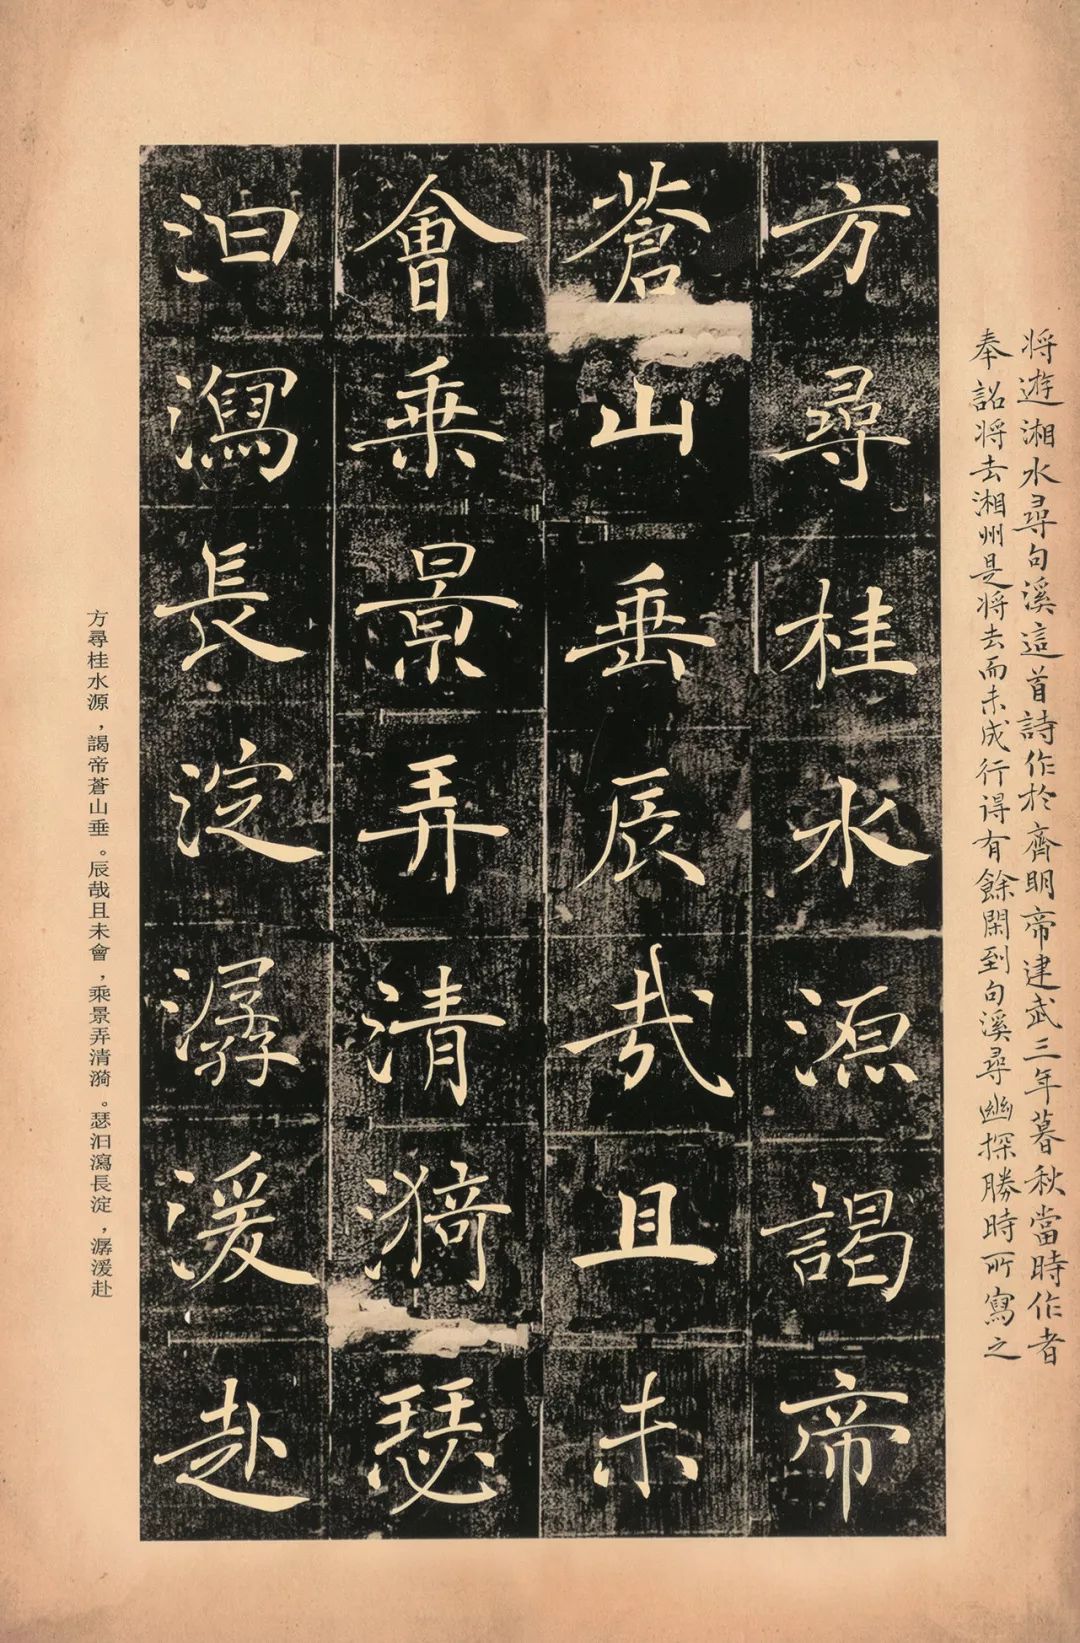 将遊湘水尋句溪這首詩作於齊明帝建武三年暮秋當時作者
奉詔将去湘州是将去而未成行得有餘閑到句溪尋幽探勝時所寫之
方尋桂水源謁帝
蒼山垂辰哉且未
會乗景弄清漪瑟
汩瀉長淀潺湲赴
方尋桂水源，謁帝蒼山垂。辰哉且未會，乘景弄清漪。瑟汩瀉長淀，潺湲赴